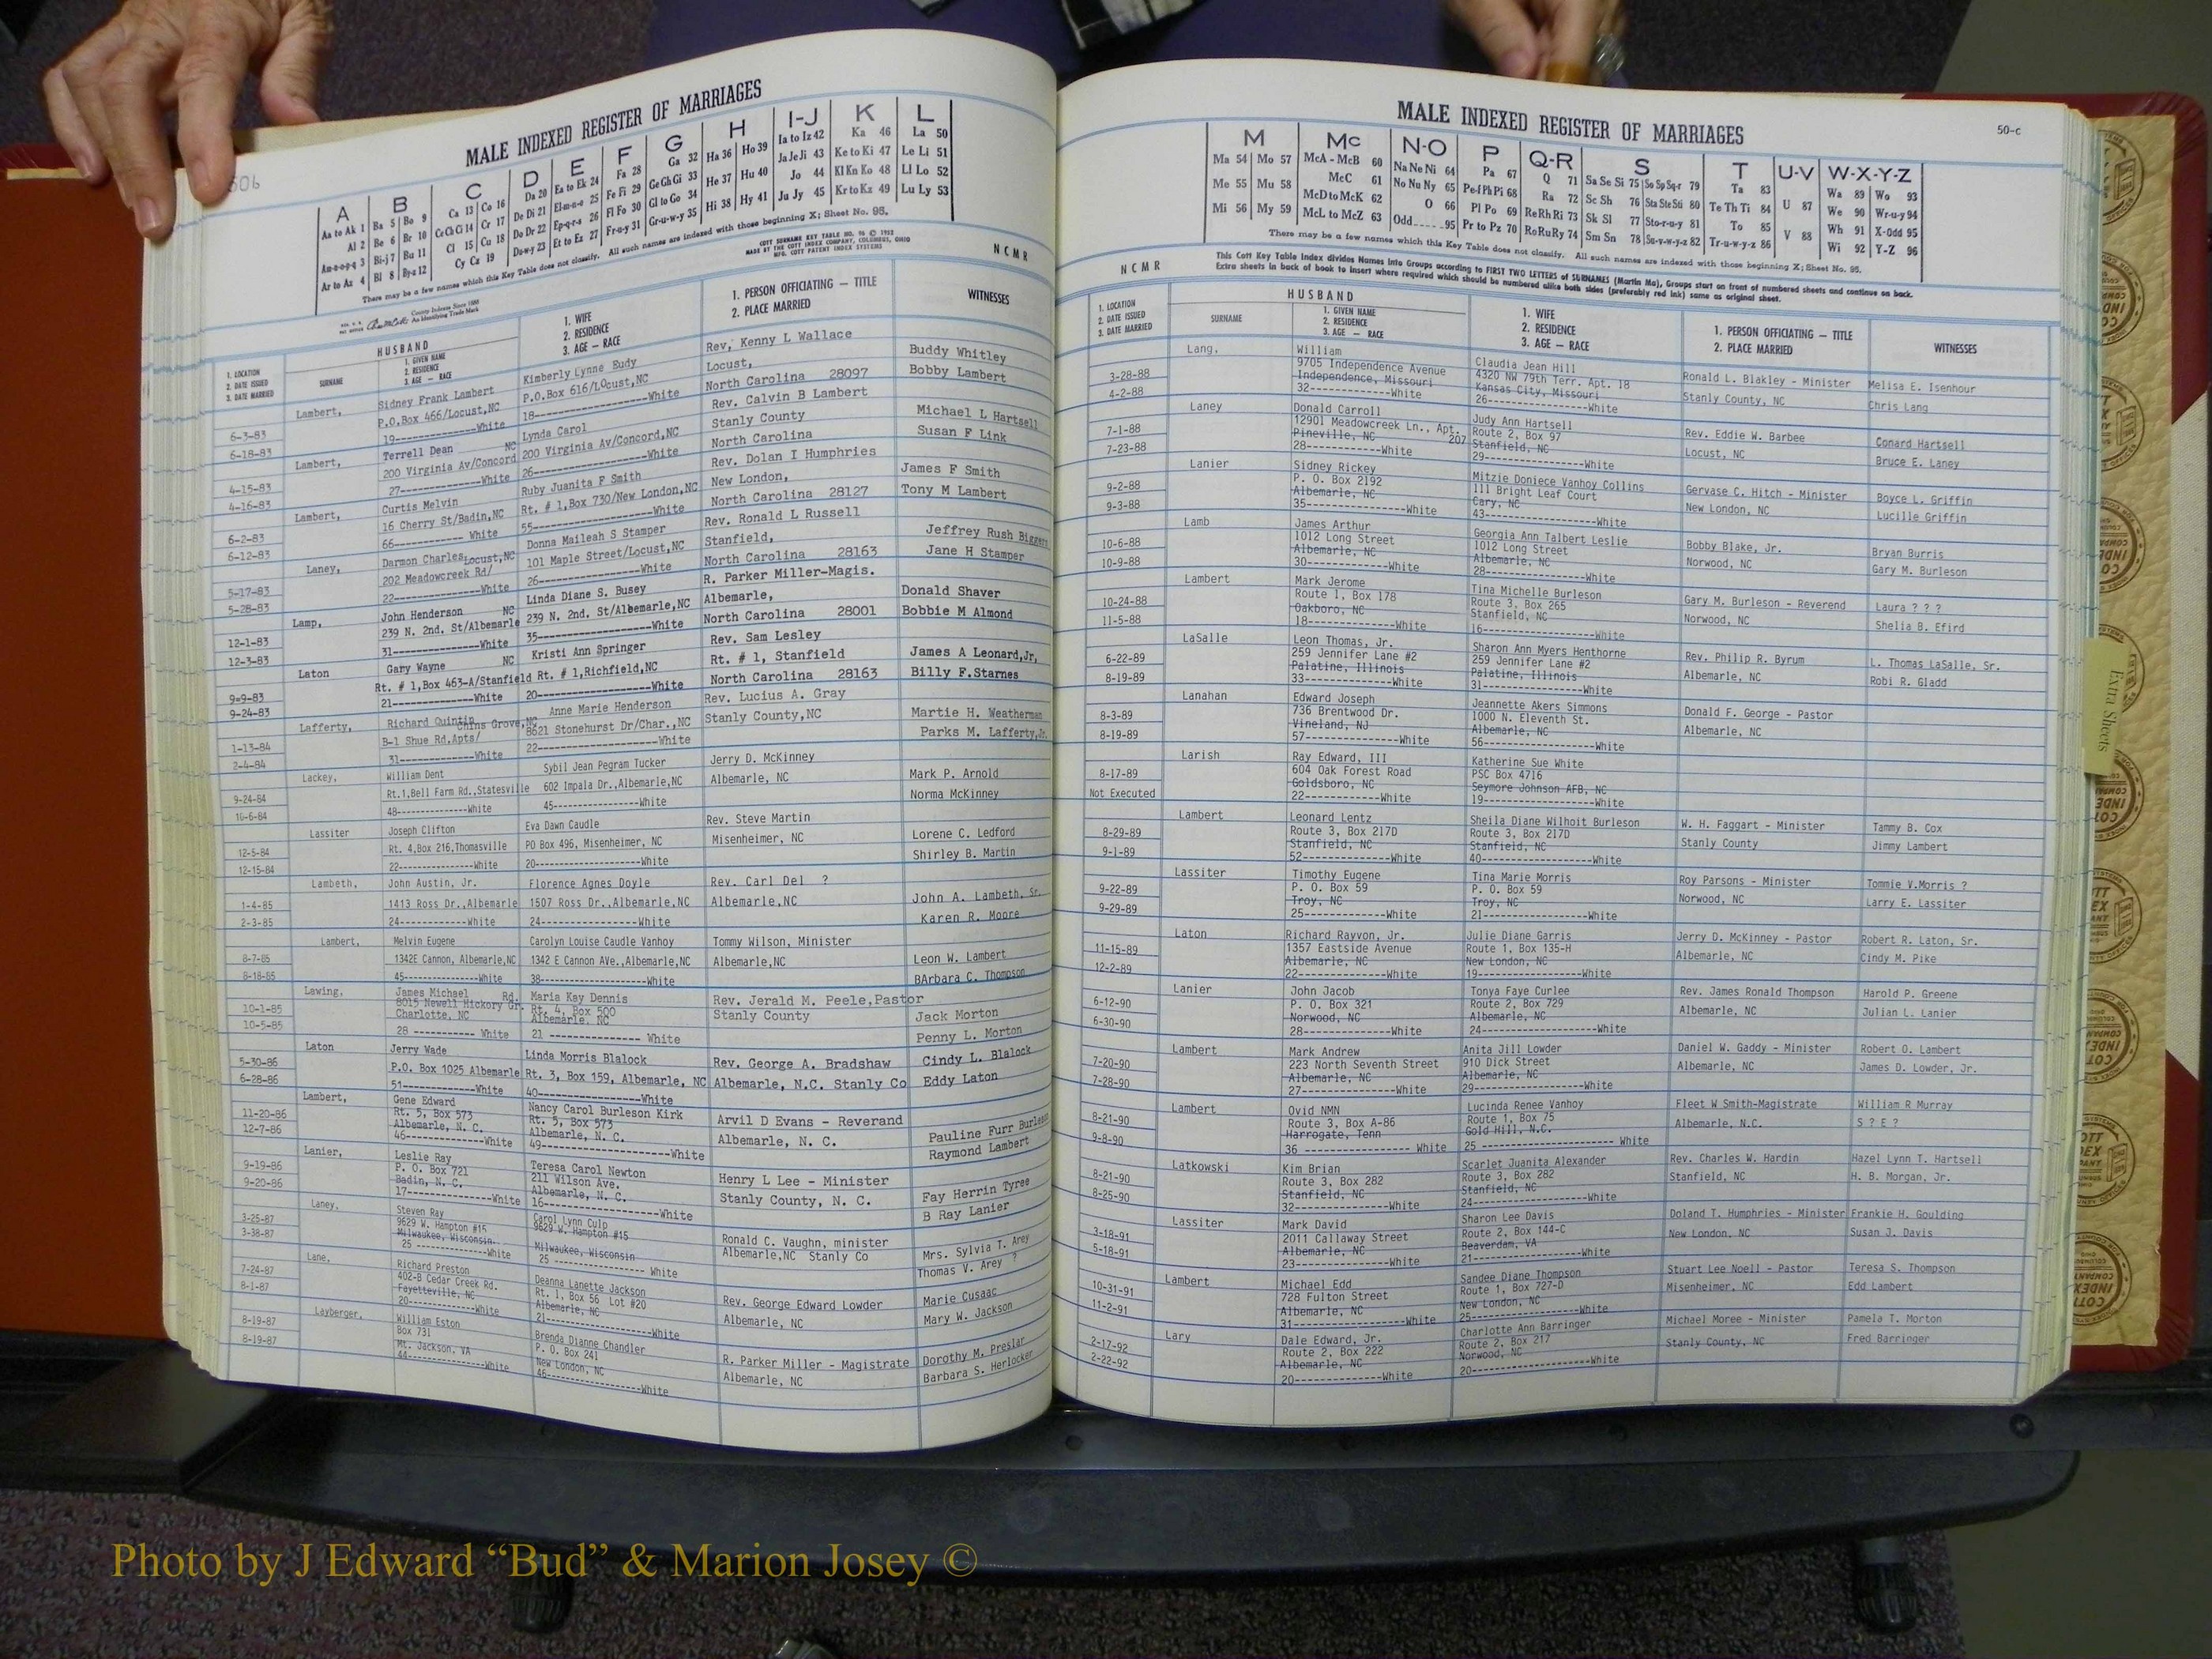 506
MALE INDEXED REGISTER OF MARRIAGES
A B C D E F G H I-J K L
Aa to Ak 1 Ba 5 Bo 9 Ca 13 Co 16 Da 20 Ea to Ek 24 Fa 28 Ga 32 Ha 36 Ho 39 Ia to Iz 42 Ka 46 La 50
Al 2 Be 6 Br 10 Ce Ch Ci 14 Cr 17 De Di 21 El-m-n-o 25 Fe Fi 29 Ge Gh Gi 33 He 37 Hu 40 Ja Je Ji 43 Ke to Ki 47 Le Li 51
Am-n-o-p-q 3 Bi-j 7 Bu 11 Cl 15 Cu 18 Do Dr 22 Ep-q-r-s 26 Fl Fo 30 Gl to Go 34 Hi 38 Hy 41 Jo 44 Kl Kn Ko 48 Ll Lo 52
Ar to Az 4 Bl 8 By-z 12 Cy Cz 19 Du-w-y 23 Et to Ez 27 Fr-u-y 31 Gr-u-w-y 35 Ju Jy 45 Kr to Kz 49 Lu Ly 53
There may be a few names which this Key Table does not classify. All such names are indexed with those beginning X; Sheet No. 95.
COTT SURNAME KEY TABLE NO. 96 © 1952
MADE BY THE COTT INDEX COMPANY, COLUMBUS, OHIO
MFG. COTT PATENT INDEX SYSTEMS
County Indexes Since 1888
An Identifying Trade Mark
NCMR
1. LOCATION
2. DATE ISSUED
3. DATE MARRIED
HUSBAND
SURNAME
1. GIVEN NAME
2. RESIDENCE
3. AGE — RACE
1. WIFE
2. RESIDENCE
3. AGE — RACE
1. PERSON OFFICIATING — TITLE
2. PLACE MARRIED
WITNESSES
Lambert, Sidney Frank Lambert Kimberly Lynne Eudy Rev, Kenny L Wallace Buddy Whitley
6-3-83 P.O.Box 466/Locust,NC P.O.Box 616/Locust,NC Locust, Bobby Lambert
6-18-83 19--------------White 18--------------------White North Carolina 28097
Lambert, Terrell Dean NC Lynda Carol Rev. Calvin B Lambert Michael L Hartsell
4-15-83 200 Virginia Av/Concord 200 Virginia Av/Concord,NC Stanly County Susan F Link
4-16-83 27--------------White 26--------------------White North Carolina
Lambert, Curtis Melvin Ruby Juanita F Smith Rev. Dolan I Humphries James F Smith
6-2-83 16 Cherry St/Badin,NC Rt. # 1,Box 730/New London,NC New London, Tony M Lambert
6-12-83 66------------ White 55--------------------White North Carolina 28127
Laney, Darmon Charles Locust,NC Donna Maileah S Stamper Rev. Ronald L Russell Jeffrey Rush Biggers
5-17-83 202 Meadowcreek Rd/ 101 Maple Street/Locust,NC Stanfield, Jane H Stamper
5-28-83 22--------------White 26------------------White North Carolina 28163
Lamp, John Henderson NC Linda Diane S. Busey R. Parker Miller-Magis. Donald Shaver
12-1-83 239 N. 2nd. St/Albemarle 239 N. 2nd. St/Albemarle,NC Albemarle, Bobbie M Almond
12-3-83 31--------------White 35--------------------White North Carolina 28001
Laton Gary Wayne NC Kristi Ann Springer Rev. Sam Lesley James A Leonard,Jr,
9=9-83 Rt. # 1,Box 463-A/Stanfield Rt. # 1,Richfield,NC Rt. # 1, Stanfield Billy F.Starnes
9-24-83 21--------------White 20--------------------White North Carolina 28163
Lafferty, Richard Quintin Chins Grove,NC Anne Marie Henderson Rev. Lucius A. Gray Martie H. Weatherman
1-13-84 B-1 Shue Rd.Apts/ 8621 Stonehurst Dr/Char.,NC Stanly County,NC Parks M. Lafferty,Jr.
2-4-84 31--------------White 22--------------------White
Lackey, William Dent Sybil Jean Pegram Tucker Jerry D. McKinney Mark P. Arnold
9-24-84 Rt.1,Bell Farm Rd.,Statesville 602 Impala Dr.,Albemarle,NC Albemarle, NC Norma McKinney
10-6-84 48--------------White 45-----------------White
Lassiter Joseph Clifton Eva Dawn Caudle Rev. Steve Martin Lorene C. Ledford
12-5-84 Rt. 4,Box 216,Thomasville PO Box 496, Misenheimer, NC Misenheimer, NC Shirley B. Martin
12-15-84 22--------------White 20--------------------White
Lambeth, John Austin, Jr. Florence Agnes Doyle Rev. Carl Del ? John A. Lambeth, Sr.
1-4-85 1413 Ross Dr.,Albemarle 1507 Ross Dr.,Albemarle,NC Albemarle,NC Karen R. Moore
2-3-85 24-------------White 24--------------------White
Lambert, Melvin Eugene Carolyn Louise Caudle Vanhoy Tommy Wilson, Minister Leon W. Lambert
8-7-85 1342E Cannon, Albemarle,NC 1342 E Cannon AVe.,Albemarle,NC Albemarle,NC BArbara C. Thompson
8-18-85 45--------------White 38--------------------White
Lawing, James Michael Rd. Maria Kay Dennis Rev. Jerald M. Peele,Pastor Jack Morton
10-1-85 8015 Newell Hickory Gr. Rt. 4, Box 500 Stanly County Penny L. Morton
10-5-85 Charlotte, NC Albemarle, NC
28 ----------- White 21 -------------- White
Laton Jerry Wade Linda Morris Blalock Rev. George A. Bradshaw Cindy L. Blalock
5-30-86 P.O. Box 1025 Albemarle Rt. 3, Box 159, Albemarle, NC Albemarle, N.C. Stanly Co Eddy Laton
6-28-86 51--------------White 40--------------------White
Lambert, Gene Edward Nancy Carol Burleson Kirk Arvil D Evans - Reverand Pauline Furr Burleson
11-20-86 Rt. 5, Box 573 Rt. 5, Box 573 Albemarle, N. C. Raymond Lambert
12-7-86 Albemarle, N. C. Albemarle, N. C.
46--------------White 49--------------------White
Lanier, Leslie Ray Teresa Carol Newton Henry L Lee - Minister Fay Herrin Tyree
9-19-86 P. O. Box 721 211 Wilson Ave. Stanly County, N. C. B Ray Lanier
9-20-86 Badin, N. C. Albemarle, N. C.
17--------------White 16--------------------White
Laney, Steven Ray Carol Lynn Culp Ronald C. Vaughn, minister Mrs. Sylvia T. Arey
3-25-87 9629 W. Hampton #15 9629 W. Hampton #15 Albemarle,NC Stanly Co Thomas V. Arey ?
3-38-87 Milwaukee, Wisconsin Milwaukee, Wisconsin
25 -------------White 25 -------------- White
Lane, Richard Preston Deanna Lanette Jackson Rev. George Edward Lowder Marie Cusaac
7-24-87 402-B Cedar Creek Rd. Rt. 1, Box 56 Lot #20 Albemarle, NC Mary W. Jackson
8-1-87 Fayetteville, NC Albemarle, NC
20--------------White 21--------------------White
Layberger, William Eston Brenda Dianne Chandler R. Parker Miller - Magistrate Dorothy M. Preslar
8-19-87 Box 731 P. O. Box 241 Albemarle, NC Barbara S. Herlocker
8-19-87 Mt. Jackson, VA New London, NC
44--------------White 46--------------------White
MALE INDEXED REGISTER OF MARRIAGES
50-c
M Mc N-O P Q-R S T U-V W-X-Y-Z
Ma 54 Mo 57 McA - McB 60 Na Ne Ni 64 Pa 67 Q 71 Sa Se Si 75 So Sp Sq-r 79 Ta 83 U 87 Wa 89 Wo 93
Me 55 Mu 58 McC 61 No Nu Ny 65 Pe-f Ph Pi 68 Ra 72 Sc Sh 76 Sta Ste Sti 80 Te Th Ti 84 V 88 We 90 Wr-u-y 94
Mi 56 My 59 McD to McK 62 O 66 Pl Po 69 Re Rh Ri 73 Sk Sl 77 Sto-r-u-y 81 To 85 Wh 91 X-Odd 95
McL to McZ 63 Odd.....95 Pr to Pz 70 Ro Ru Ry 74 Sm Sn 78 Su-v-w-y-z 82 Tr-u-w-y-z 86 Wi 92 Y-Z 96
There may be a few names which this Key Table does not classify. All such names are indexed with those beginning X; Sheet No. 95.
This Cott Key Table Index divides Names into Groups according to FIRST TWO LETTERS of SURNAMES (Martin Ma), Groups start on front of numbered sheets and continue on back.
Extra sheets in back of book to insert where required which should be numbered alike both sides (preferably red ink) same as original sheet.
NCMR
1. LOCATION
2. DATE ISSUED
3. DATE MARRIED
HUSBAND
SURNAME
1. GIVEN NAME
2. RESIDENCE
3. AGE — RACE
1. WIFE
2. RESIDENCE
3. AGE — RACE
1. PERSON OFFICIATING — TITLE
2. PLACE MARRIED
WITNESSES
Lang, William Claudia Jean Hill Ronald L. Blakley - Minister Melisa E. Isenhour
3-28-88 9705 Independence Avenue 4320 NW 79th Terr. Apt. 18 Stanly County, NC Chris Lang
4-2-88 Independence, Missouri Kansas City, Missouri
32--------------White 26--------------------White
Laney Donald Carroll Judy Ann Hartsell Rev. Eddie W. Barbee Conard Hartsell
7-1-88 12901 Meadowcreek Ln., Apt. 207 Route 2, Box 97 Locust, NC Bruce E. Laney
7-23-88 Pineville, NC Stanfield, NC
28--------------White 29--------------------White
Lanier Sidney Rickey Mitzie Doniece Vanhoy Collins Gervase C. Hitch - Minister Boyce L. Griffin
9-2-88 P. O. Box 2192 111 Bright Leaf Court New London, NC Lucille Griffin
9-3-88 Albemarle, NC Cary, NC
35--------------White 43--------------------White
Lamb James Arthur Georgia Ann Talbert Leslie Bobby Blake, Jr. Bryan Burris
10-6-88 1012 Long Street 1012 Long Street Norwood, NC Gary M. Burleson
10-9-88 Albemarle, NC Albemarle, NC
30--------------White 28--------------------White
Lambert Mark Jerome Tina Michelle Burleson Gary M. Burleson - Reverend Laura ? ? ?
10-24-88 Route 1, Box 178 Route 3, Box 265 Norwood, NC Shelia B. Efird
11-5-88 Oakboro, NC Stanfield, NC
18--------------White 16--------------------White
LaSalle Leon Thomas, Jr. Sharon Ann Myers Henthorne Rev. Philip R. Byrum L. Thomas LaSalle, Sr.
6-22-89 259 Jennifer Lane #2 259 Jennifer Lane #2 Albemarle, NC Robi R. Gladd
8-19-89 Palatine, Illinois Palatine, Illinois
33--------------White 31--------------------White
Lanahan Edward Joseph Jeannette Akers Simmons Donald F. George - Pastor
8-3-89 736 Brentwood Dr. 1000 N. Eleventh St. Albemarle, NC
8-19-89 Vineland, NJ Albemarle, NC
57--------------White 56--------------------White
Larish Ray Edward, III Katherine Sue White
8-17-89 604 Oak Forest Road PSC Box 4716
Not Executed Goldsboro, NC Seymore Johnson AFB, NC
22--------------White 19--------------------White
Lambert Leonard Lentz Sheila Diane Wilhoit Burleson W. H. Faggart - Minister Tammy B. Cox
8-29-89 Route 3, Box 217D Route 3, Box 217D Stanly County Jimmy Lambert
9-1-89 Stanfield, NC Stanfield, NC
52--------------White 40--------------------White
Lassiter Timothy Eugene Tina Marie Morris Roy Parsons - Minister Tommie V.Morris ?
9-22-89 P. O. Box 59 P. O. Box 59 Norwood, NC Larry E. Lassiter
9-29-89 Troy, NC Troy, NC
25--------------White 21--------------------White
Laton Richard Rayvon, Jr. Julie Diane Garris Jerry D. McKinney - Pastor Robert R. Laton, Sr.
11-15-89 1357 Eastside Avenue Route 1, Box 135-H Albemarle, NC Cindy M. Pike
12-2-89 Albemarle, NC New London, NC
22--------------White 19--------------------White
Lanier John Jacob Tonya Faye Curlee Rev. James Ronald Thompson Harold P. Greene
6-12-90 P. O. Box 321 Route 2, Box 729 Albemarle, NC Julian L. Lanier
6-30-90 Norwood, NC Albemarle, NC
28--------------White 24--------------------White
Lambert Mark Andrew Anita Jill Lowder Daniel W. Gaddy - Minister Robert O. Lambert
7-20-90 223 North Seventh Street 910 Dick Street Albemarle, NC James D. Lowder, Jr.
7-28-90 Albemarle, NC Albemarle, NC
27--------------White 29--------------------White
Lambert Ovid NMN Lucinda Renee Vanhoy Fleet W Smith-Magistrate William R Murray
8-21-90 Route 3, Box A-86 Route 1, Box 75 Albemarle, N.C. S ? E ?
9-8-90 Harrogate, Tenn Gold Hill, N.C.
36 --------------- White 25 --------------------- White
Latkowski Kim Brian Scarlet Juanita Alexander Rev. Charles W. Hardin Hazel Lynn T. Hartsell
8-21-90 Route 3, Box 282 Route 3, Box 282 Stanfield, NC H. B. Morgan, Jr.
8-25-90 Stanfield, NC Stanfield, NC
32--------------White 24--------------------White
Lassiter Mark David Sharon Lee Davis Doland T. Humphries - Minister Frankie H. Goulding
3-18-91 2011 Callaway Street Route 2, Box 144-C New London, NC Susan J. Davis
5-18-91 Albemarle, NC Beaverdam, VA
23--------------White 21--------------------White
Lambert Michael Edd Sandee Diane Thompson Stuart Lee Noell - Pastor Teresa S. Thompson
10-31-91 728 Fulton Street Route 1, Box 727-D Misenheimer, NC Edd Lambert
11-2-91 Albemarle, NC New London, NC
31--------------White 25--------------------White
Lary Dale Edward, Jr. Charlotte Ann Barringer Michael Moree - Minister Pamela T. Morton
2-17-92 Route 2, Box 222 Route 2, Box 217 Stanly County, NC Fred Barringer
2-22-92 Albemarle, NC Norwood, NC
20--------------White 20--------------------White
Extra Sheets
Photo by J Edward “Bud” & Marion Josey ©